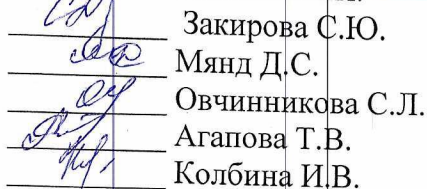 Закирова С.Ю.
Мянд Д.С.
Овчинникова С.Л.
Агапова Т.В.
Колбина И.В.